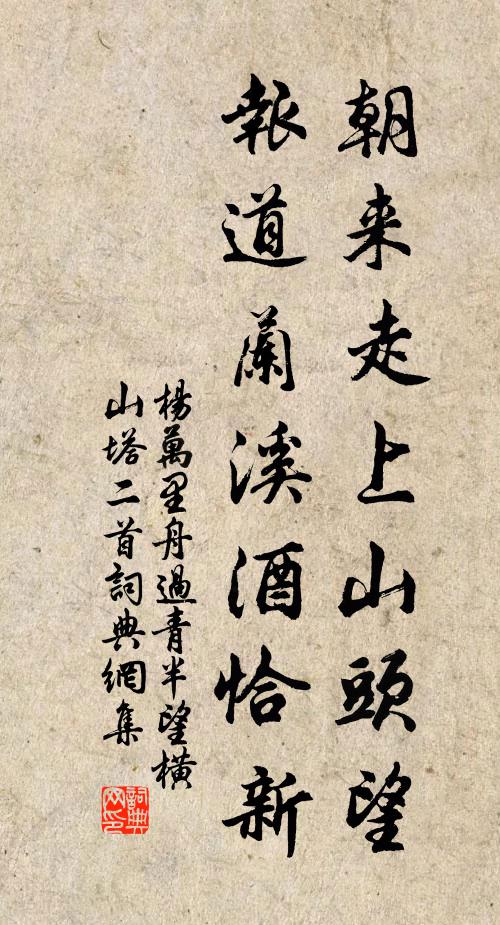 朝来走上山頭望
報道蘭溪酒恰新
楊萬里舟過青半望橫
山塔二首詞典網集
詞典
网印